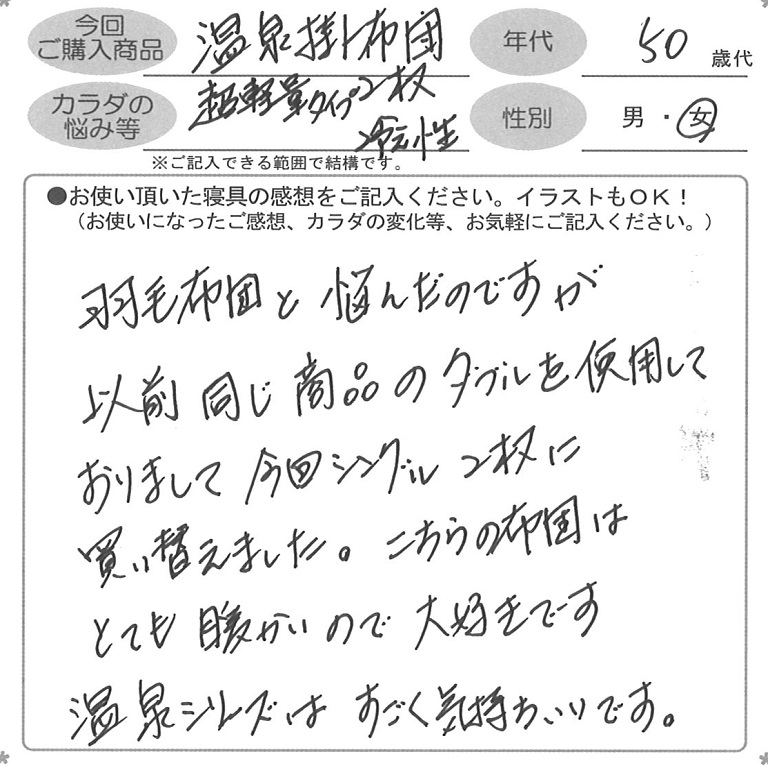 今回
ご購入商品
温泉掛け布団
超軽量タイプ2枚
年代
50歳代
カラダの
悩み等
冷え性
性別
男・女
※ご記入できる範囲で結構です。
●お使い頂いた寝具の感想をご記入ください。イラストもOK！
（お使いになったご感想、カラダの変化等、お気軽にご記入ください。）
羽毛布団と悩んだのですが
以前同じ商品のダブルを使用して
おりまして今回シングル2枚に
買い替えました。こちらの布団は
とても暖かいので大好きです
温泉シリーズはすごく気持ちいいです。